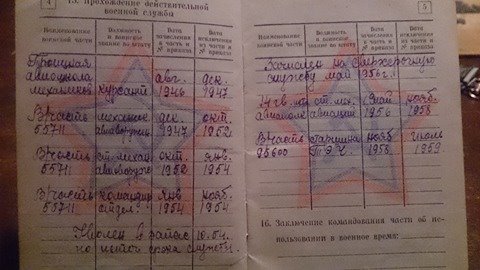 4
13. Прохождение действительной
военной службы
Наименование воинской части
Должность и воинское звание по штату
Дата зачисления в часть и № приказа
Дата исключения из части и № приказа
Троицкая авиашкола механиков
курсант
авг. 1946
дек. 1947
В/часть 55711
механик
дек. 1947
окт. 1952
В/часть 55711
ст. механ.
окт. 1952
янв. 1954
В/часть 55711
командир отдел.
янв. 1954
нояб. 1954
Уволен в запас
по
срока службы.
5
Наименование воинской части
Должность и воинское звание по штату
Дата зачисления в часть и № приказа
Дата исключения из части и № приказа
на сверхсрочную
службу май 1956г.
ст. мех.
май 1956
нояб. 1958
В/часть 95600
старшина
нояб. 1958
июль 1959
16. Заключение командования части об ис-
пользовании в военное время: